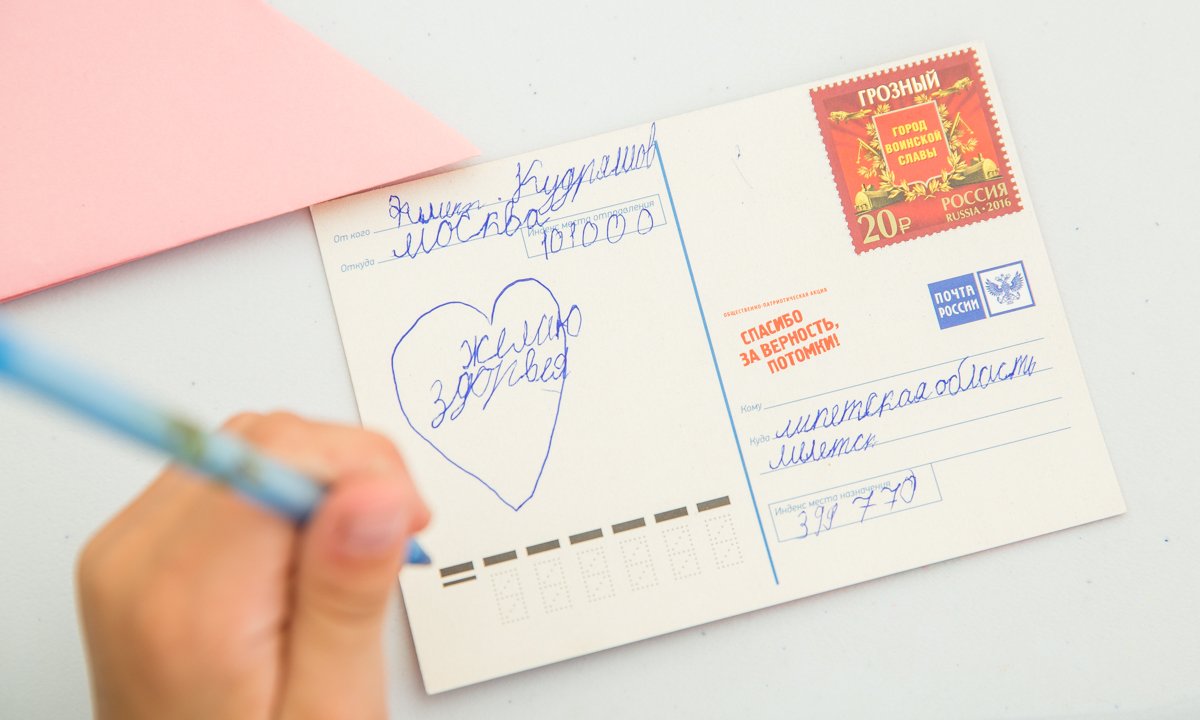 От кого Кудряшов
Откуда Москва
Индекс места отправления
101000
желаю
здорвея
ГРОЗНЫЙ
ГОРОД
ВОИНСКОЙ
СЛАВЫ
20₽
РОССИЯ
RUSSIA · 2016
ПОЧТА
РОССИИ
ОБЩЕСТВЕННО-ПАТРИОТИЧЕСКАЯ АКЦИЯ
СПАСИБО
ЗА ВЕРНОСТЬ,
ПОТОМКИ!
Кому
Куда липетская область
Индекс места назначения
399 770